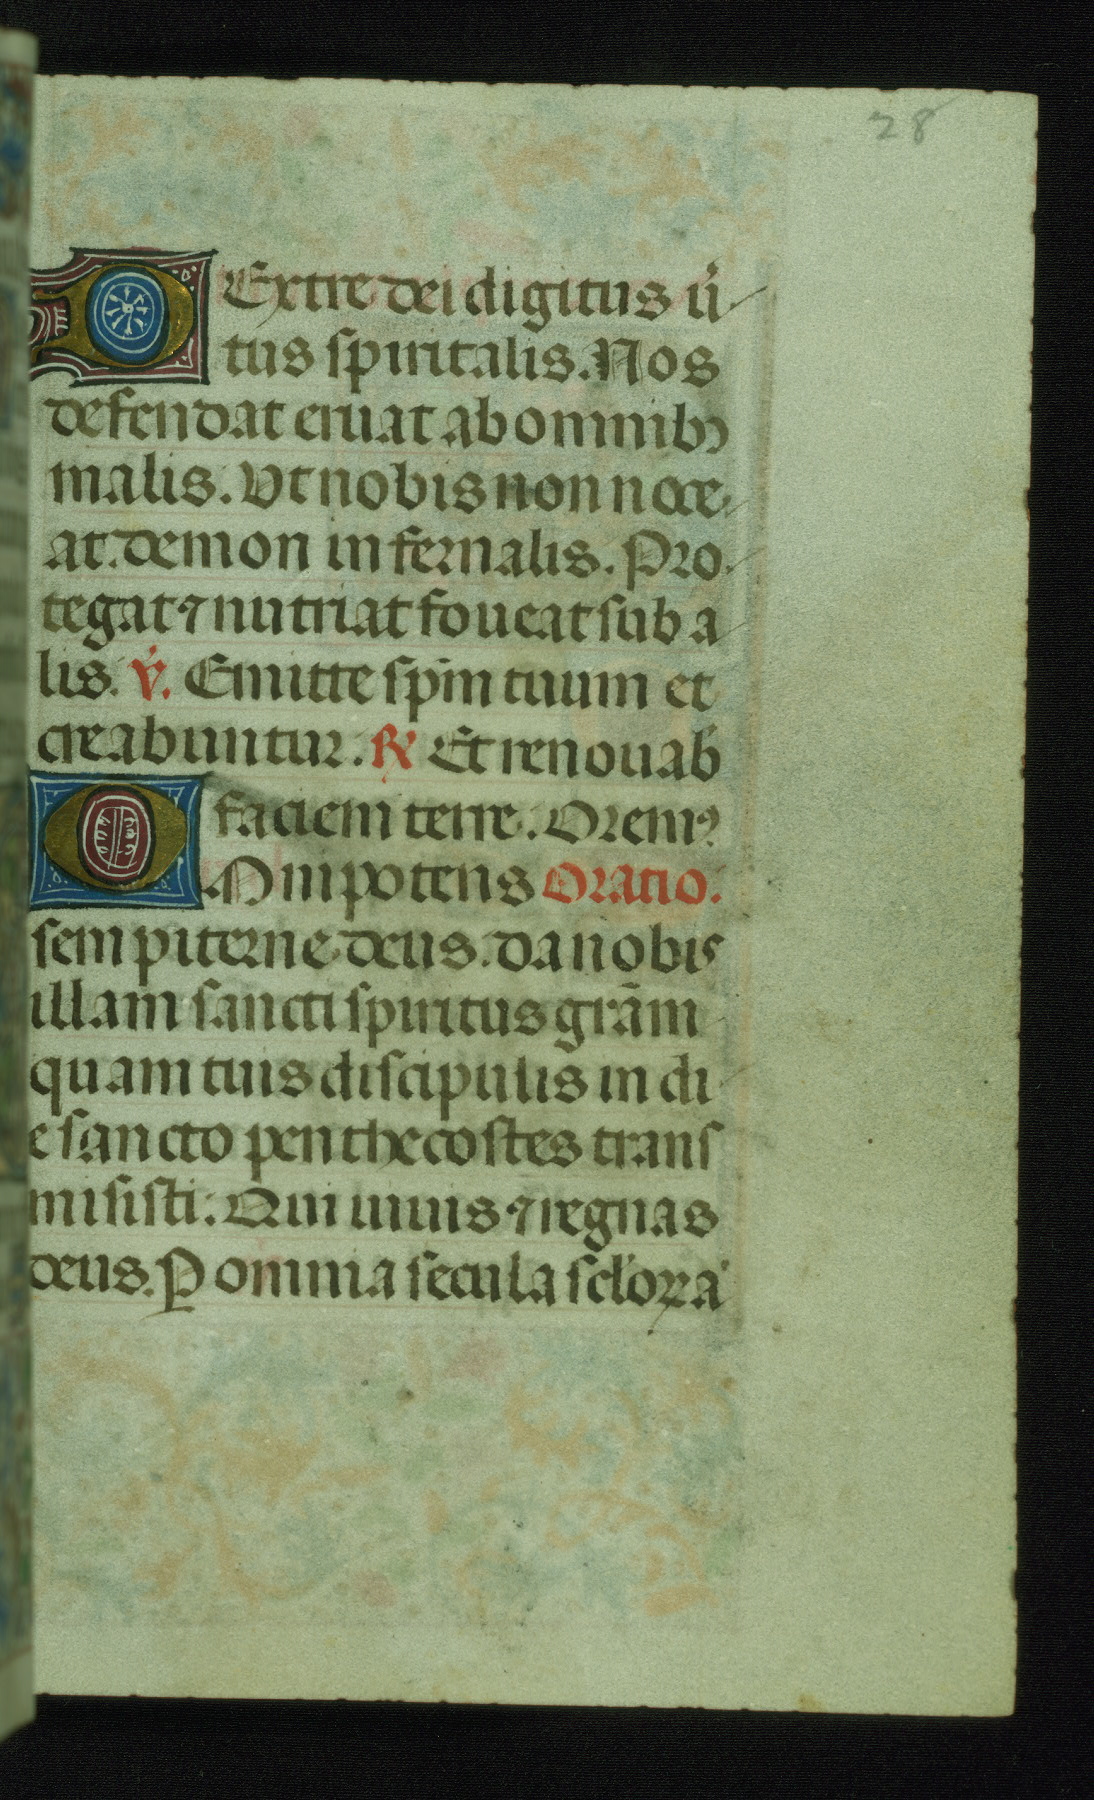 28
DExtre dei digitus ū
tus spiritalis. Nos
defendat eruat ab omnibꝫ
malis. Vt nobis non noce
at. demon infernalis. Pro
tegat ⁊ nutriat foueat sub a
lis. v̇. Emitte sp̄m tuum et
creabuntur. ℟ Et renouab̄
faciem terre. Oremꝰ
OMnipotens Oratio.
sempiterne deus. da nobis
illam sancti spiritus grām
quam tuis discipulis in di
e sancto penthecostes trans
misisti. Qui uiuis ⁊ regnas
deus. P omnia secula scl̄oꝝ a